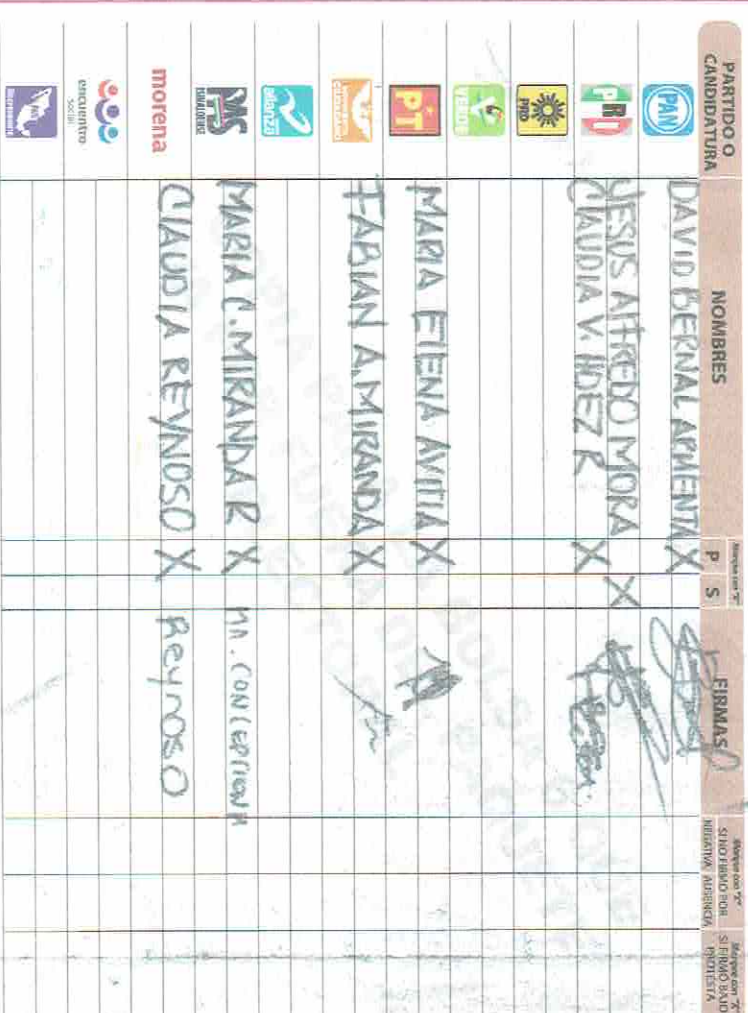 PARTIDO O CANDIDATURA
NOMBRES
Marque con "X"
P S
FIRMAS
Marque con "X" SI NO FIRMÓ POR
NEGATIVA AUSENCIA
Marque con "X" SI FIRMÓ BAJO PROTESTA
PAN
DAVID BERNAL ARMENTA X
PRI
JESUS ALFREDO MORA X
CLAUDIA V. HDEZ R X
PRD
VERDE
PT
MARIA ELENA AVITIA X
FABIAN A. MIRANDA X
alianza
PAS
SINALOENSE
MARIA C. MIRANDA R X MA. CONCEPCION M
morena
CLAUDIA REYNOSO X Reynoso
encuentro
social